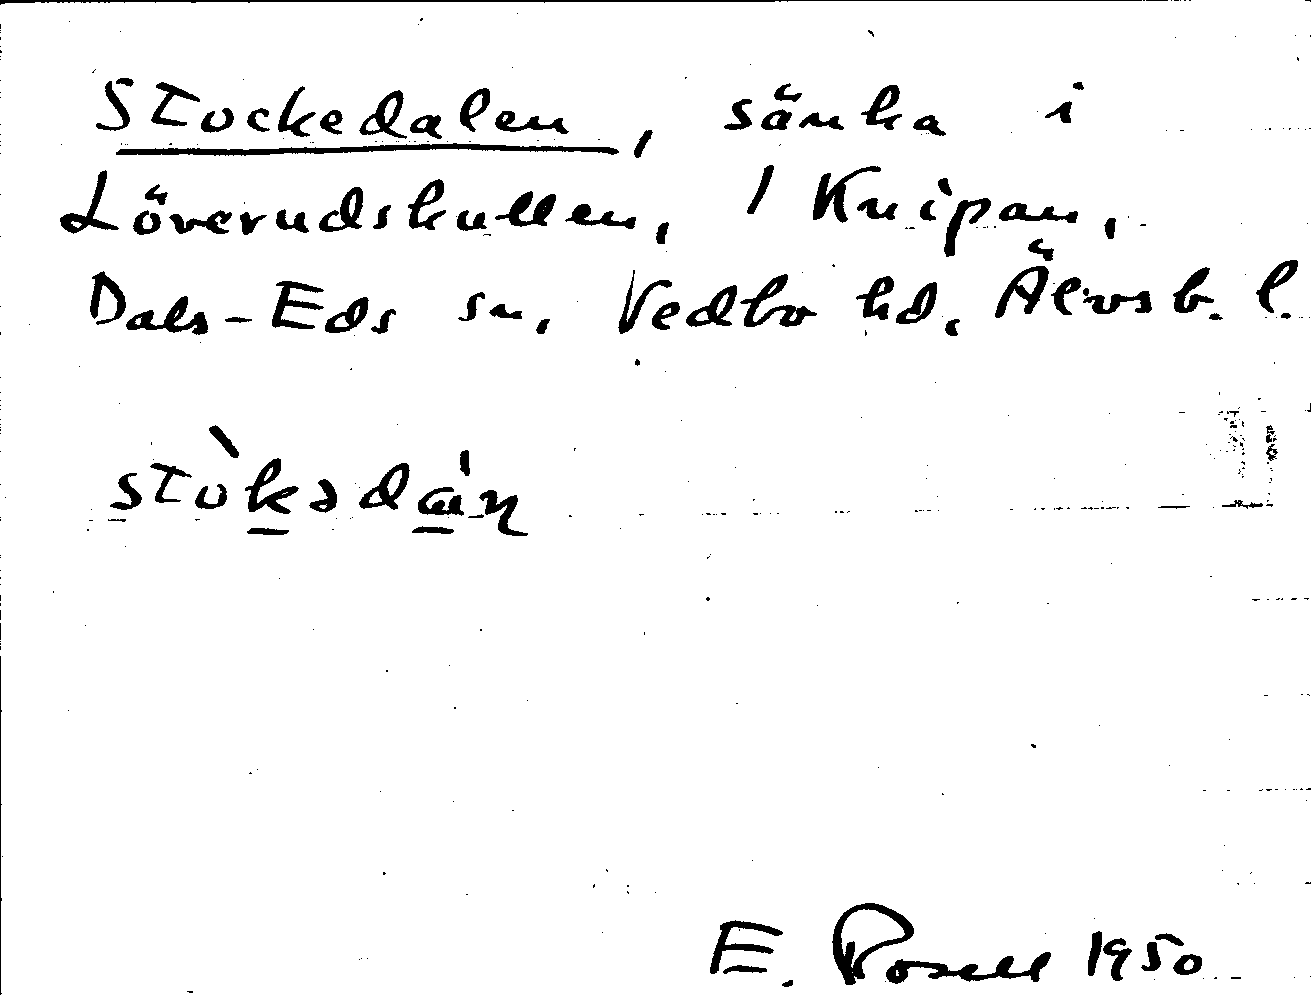 Stockedalen, sänka i
Löverudskullen, 1 Knipan,
Dals-Eds sn, Vedbo hd, Älvsb. l.
stòkədɑ̀n
E. Rosell 1950